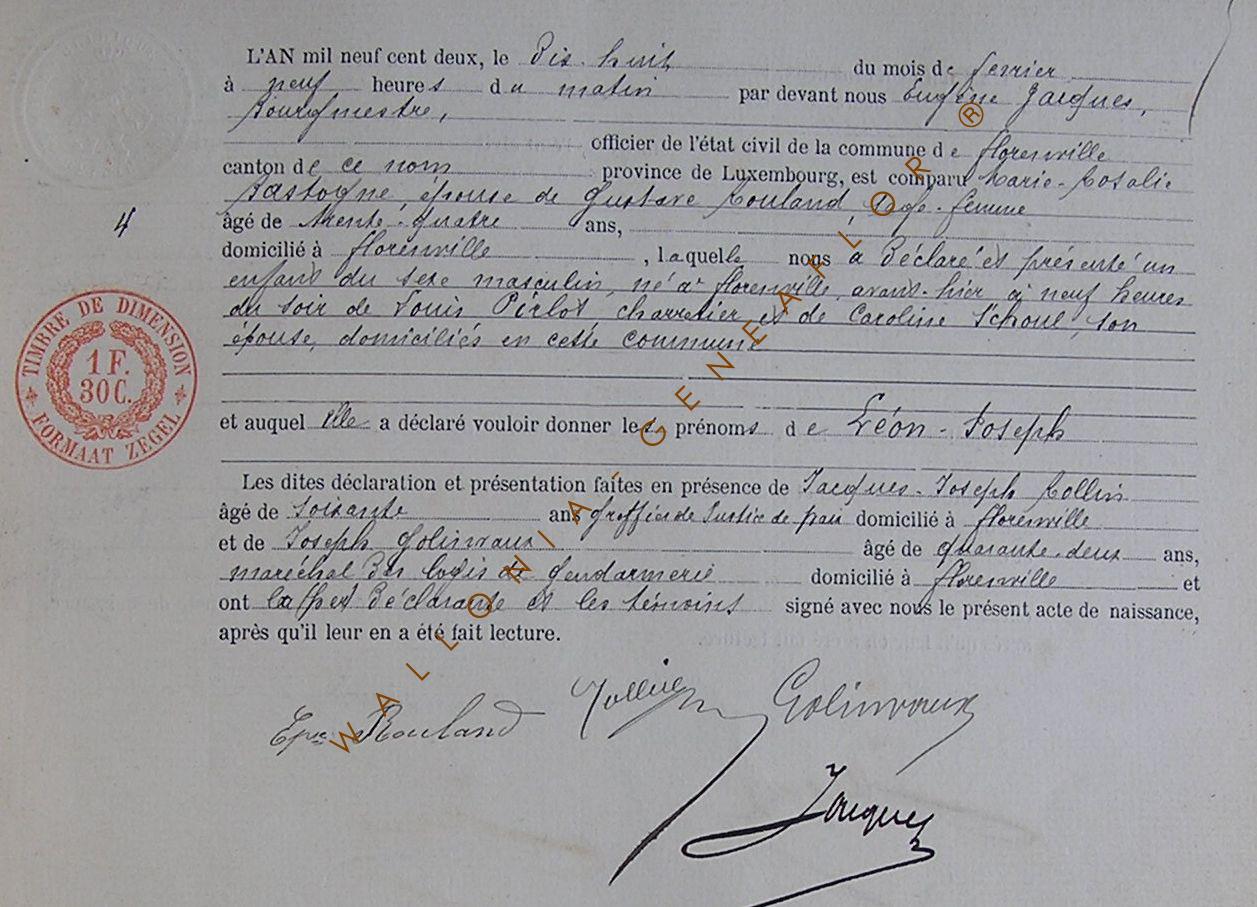 L'AN mil neuf cent deux, le Dix-huit du mois de février
à neuf heures du matin par devant nous Eugène Jacques,
Bourgmestre,
officier de l'état civil de la commune de florenville
canton de ce nom province de Luxembourg, est comparu Marie-Rosalie
Bastogne, épouse de Gustave Rouland, sage-femme
âgé de trente-quatre ans,
domicilié à florenville, laquelle nous a déclaré et présenté un
enfant du sexe masculin, né à florenville, avant-hier à neuf heures
du soir de Louis Pirlot, charretier et de Caroline Schoul, son
épouse, domiciliés en cette commune
et auquel elle a déclaré vouloir donner les prénoms de Léon-Joseph
Les dites déclaration et présentation faites en présence de Jacques-Joseph Collin
âgé de soixante ans greffier de Justice de paix domicilié à florenville
et de Joseph Golinvaux âgé de quarante-deux ans,
maréchal des logis de gendarmerie domicilié à florenville et
ont la déclarante et les témoins signé avec nous le présent acte de naissance,
après qu'il leur en a été fait lecture.
4
TIMBRE DE DIMENSION
1 F.
30 C.
FORMAAT ZEGEL
Epse Rouland
Collin
Golinvaux
Jacques
WALLONIA-GENEAFLOR®